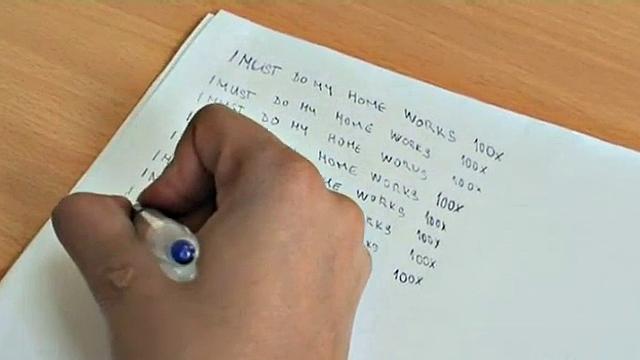 I MUST DO MY HOME WORKS 100X
I MUST DO MY HOME WORKS 100X
I MUST DO MY HOME WORKS 100X
HOME WORKS 100X
WORKS 100X
100X
100X
100X